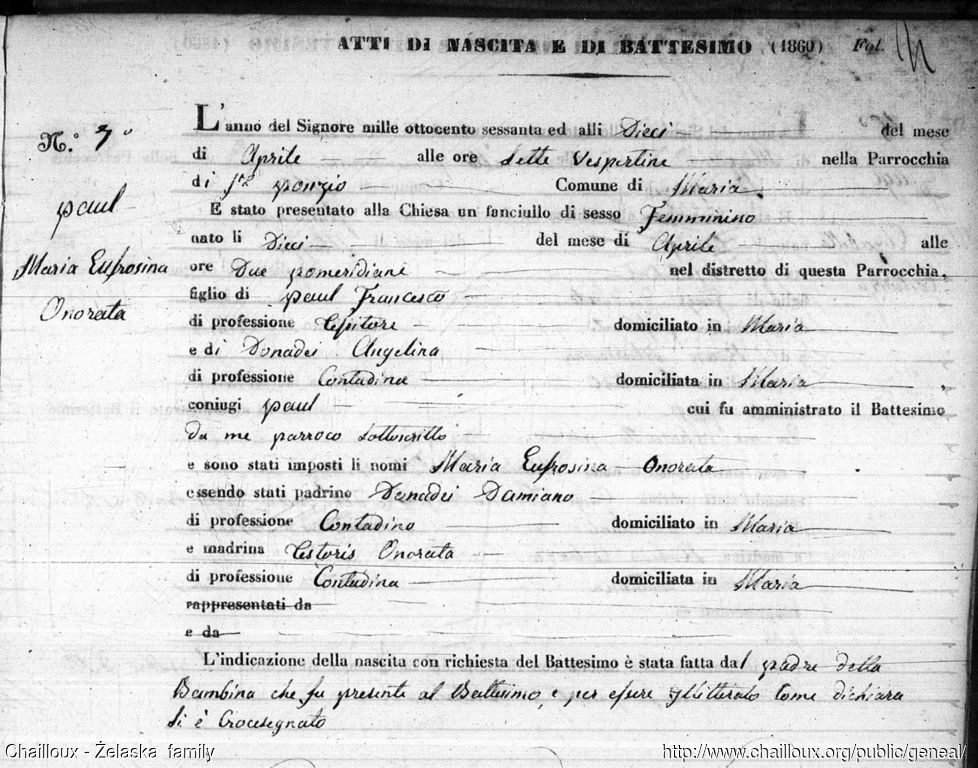 ATTI DI NASCITA E DI BATTESIMO (1860) Fol.
N.° 7°
paul
Maria Eufrosina
Onorata
L'anno del Signore mille ottocento sessanta ed alli Dieci del mese
di Aprile alle ore Sette Vespertine nella Parrocchia
di Sto ponzio Comune di Maria
E stato presentato alla Chiesa un fanciullo di sesso Femminino
nato li Dieci del mese di Aprile alle
ore Due pomeridiane nel distretto di questa Parrocchia,
figlio di paul Francesco
di professione Tessitore domiciliato in Maria
e di Donadei Angelina
di professione Contadina domiciliata in Maria
coniugi paul cui fu amministrato il Battesimo
da me parroco sottoscritto
e sono stati imposti li nomi Maria Eufrosina Onorata
essendo stati padrino Donadei Damiano
di professione Contadino domiciliato in Maria
e madrina Testoris Onorata
di professione Contadina domiciliata in Maria
rappresentati da
e da
L'indicazione della nascita con richiesta del Battesimo è stata fatta dal padre della
Bambina che fu presente al Battesimo, e per essere illitterato come dichiara
si è Crocesegnato
Chailloux - Żelaska family
http://www.chailloux.org/public/geneal/